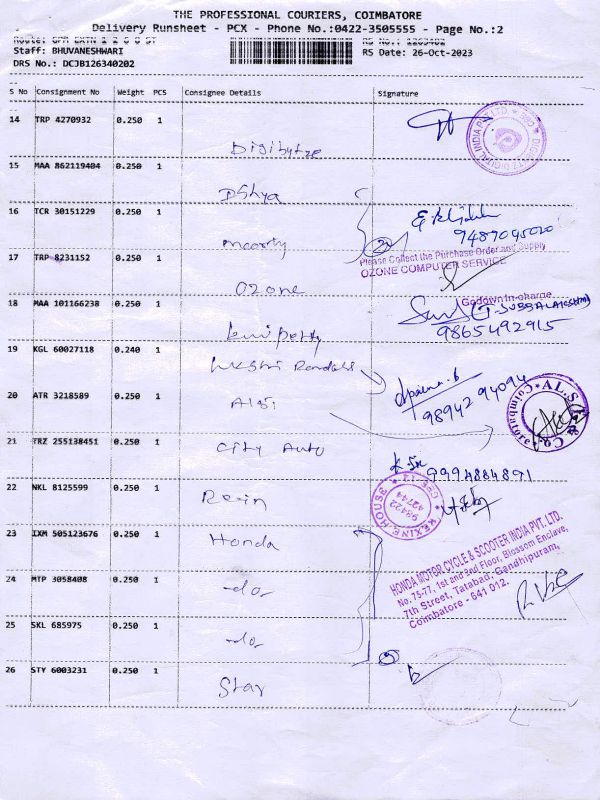 THE PROFESSIONAL COURIERS, COIMBATORE
Delivery Runsheet - PCX - Phone No.:0422-3505555 - Page No.:2
Staff: BHUVANESHWARI
RS Date: 26-Oct-2023
DRS No.: DCJB126340202
S No Consignment No Weight PCS Consignee Details Signature
14 TRP 4270932 0.250 1
DIGIBYTZ DIGITAL INDIA PVT. LTD. CBE
15 MAA 862119404 0.250 1
16 TCR 30151229 0.250 1
9487045020
Moorty
17 TRP 8231152 0.250 1
Please Collect the Purchase Order and Supply
OZONE COMPUTER SERVICE
Ozone
Godown In-charge
18 MAA 101166238 0.250 1
9865492915
19 KGL 60027118 0.240 1
20 ATR 3218589 0.250 1
98942 94094
Coimbatore
21 TRZ 255138451 0.250 1
City Auto
9994884891
22 NKL 8125599 0.250 1
Rexin
REXINE HOUSE
98422 42744
23 IXM 505123676 0.250 1
Honda
HONDA MOTOR CYCLE & SCOOTER INDIA PVT. LTD.
No. 75-77, 1st and 2nd Floor, Blossom Enclave,
7th Street, Tatabad, Gandhipuram,
Coimbatore - 641 012.
24 MTP 3058408 0.250 1
-do-
25 SKL 685975 0.250 1
-do-
26 STY 6003231 0.250 1
Star